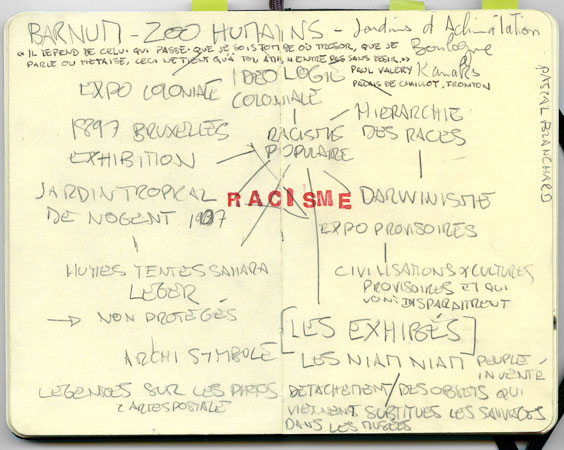 BARNUM - ZOO HUMAINS - Jardins d'Acclimatation
Boulogne
« IL DEPEND DE CELUI QUI PASSE QUE JE SOIS TOMBE OÙ TRESOR, QUE JE
PARLE OU ME TAISE, CECI NE TIENT QU'À TOI, AMI, N'ENTRE PAS SANS DESIR. »
PAUL VALERY
PALAIS DE CHAILLOT, FRONTON
Kanaks
PASCAL BLANCHARD
IDEOLOGIE
COLONIALE
EXPO COLONIALE
1897 BRUXELLES
EXHIBITION
RACISME
POPULAIRE
HIERARCHIE
DES RACES
RACISME
JARDIN TROPICAL
DE NOGENT 1907
DARWINISME
EXPO PROVISOIRES
HUTTES TENTES SAHARA
LEGER
→ NON PROTEGÉS
CIVILISATIONS & CULTURES
PROVISOIRES ET QUI
VONT DISPARAITRENT
[LES EXHIBÉS]
ARCHI SYMBOLE
LES NIAM NIAM PEUPLE
INVENTÉ
LEGENDES SUR LES PHOTOS
CARTES POSTALE
DETACHEMENT / DES OBJETS QUI
VIENNENT SUBTITUES LES SAUVAGES
DANS LES MUSÉES